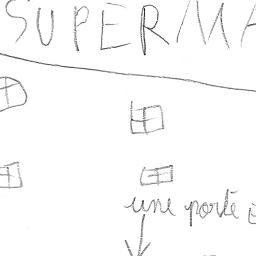 SUPERMA
une porté